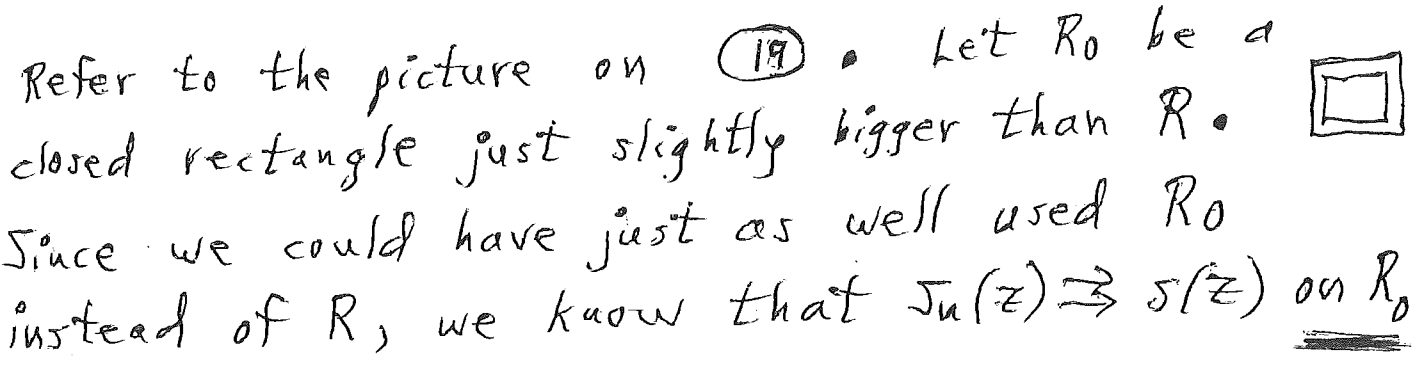 Refer to the picture on (19). Let R₀ be a
closed rectangle just slightly bigger than R.
Since we could have just as well used R₀
instead of R, we know that Sₙ(z) ⇉ S(z) on R₀